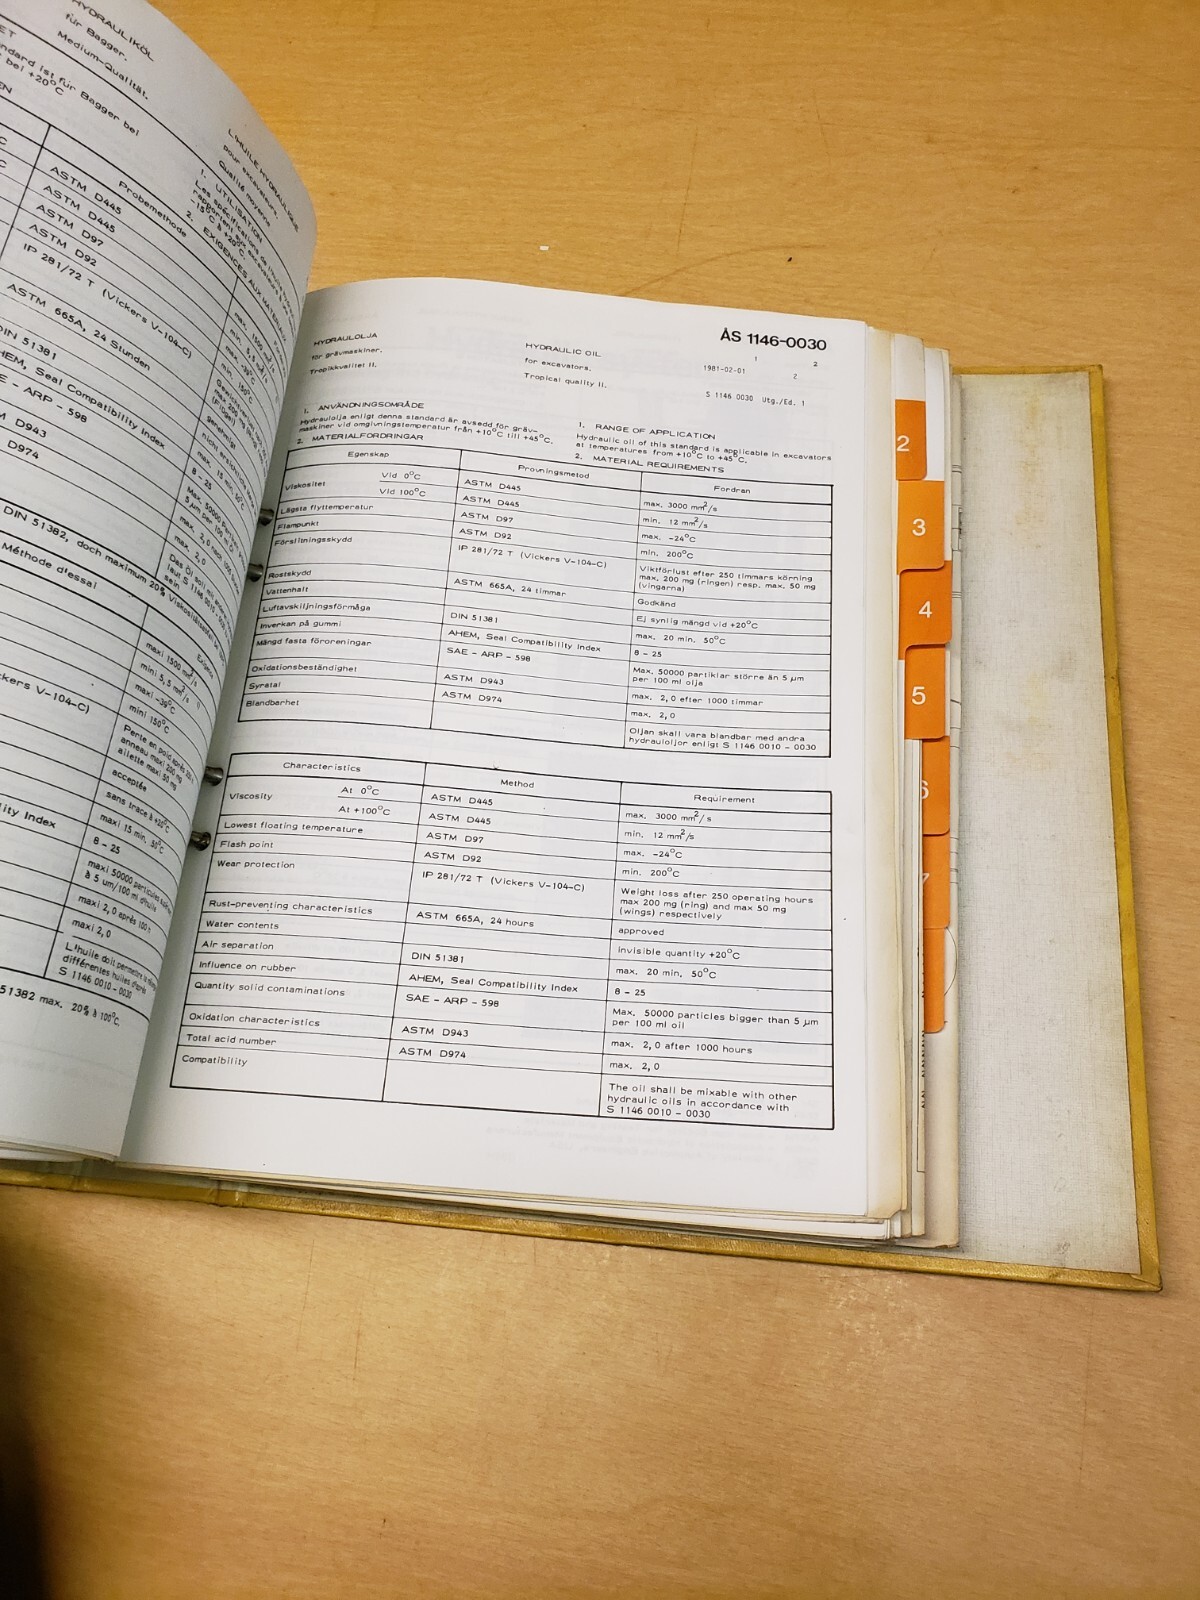 HYDRAULIKÖL
für Bagger.
Medium-Qualität.
ndard ist für Bagger bei
bei +20°C
Probemethode
ASTM D445
ASTM D445
ASTM D97
ASTM D92
IP 281/72 T (Vickers V-104-C)
ASTM 665A, 24 Stunden
DIN 51381
AHEM, Seal Compatibility Index
SAE - ARP - 598
ASTM D943
D974
DIN 51382, doch maximum 20%
Méthode d'essai
ckers V-104-C)
ility Index
51382 max. 20% à 100°C.
L'HUILE HYDRAULIQUE
pour excavateurs.
Qualité moyenne
1. UTILISATION
Les spécifications de l'huile
rapportent aux excavateurs à
-15°C à +20°C.
2. EXIGENCES AUX MATERIAUX
max. 1500 mm²/s
min. 5,5 mm²/s
max. -39°C
min. 150°C
max. 200 mg
(Flügel)
genehmigt
max. 15 min. 50°C
8 - 25
Max. 50000
5 µm per 100 ml Öl
max. 2,0 nach 1000
max. 2,0
Das Öl soll mit
laut S 1146 0010 - 0030
sein
maxi 1500 mm²/s
mini 5,5 mm²/s
maxi -39°C
mini 150°C
Perte en poid après 250
anneau maxi 200 mg
ailette maxi 50 mg
acceptée
sans trace à +20°C
maxi 15 min. 50°C
8 - 25
maxi 50000 particules
à 5 um/100 ml d'huile
maxi 2,0 après 100
maxi 2,0
L'huile doit permettre le
différentes huiles d'après
S 1146 0010 - 0030
ÅS 1146-0030
HYDRAULOLJA
för grävmaskiner.
Tropikkvalitet II.
HYDRAULIC OIL
for excavators.
Tropical quality II.
1 2
1981-02-01 2
S 1146 0030 Utg./Ed. 1
1. ANVÄNDNINGSOMRÅDE
Hydraulolja enligt denna standard är avsedd för gräv-
maskiner vid omgivningstemperatur från +10°C till +45°C.
2. MATERIALFORDRINGAR
1. RANGE OF APPLICATION
Hydraulic oil of this standard is applicable in excavators
at temperatures from +10°C to +45°C.
2. MATERIAL REQUIREMENTS
Egenskap Provningsmetod Fordran
Viskositet Vid 0°C ASTM D445 max. 3000 mm²/s
Vid 100°C ASTM D445 min. 12 mm²/s
Lägsta flyttemperatur ASTM D97 max. -24°C
Flampunkt ASTM D92 min. 200°C
Förslitningsskydd IP 281/72 T (Vickers V-104-C) Viktförlust efter 250 timmars körning
max. 200 mg (ringen) resp. max. 50 mg
(vingarna)
Rostskydd ASTM 665A, 24 timmar Godkänd
Vattenhalt Ej synlig mängd vid +20°C
Luftavskiljningsförmåga DIN 51381 max. 20 min. 50°C
Inverkan på gummi AHEM, Seal Compatibility Index 8 - 25
Mängd fasta föroreningar SAE - ARP - 598 Max. 50000 partiklar större än 5 µm
per 100 ml olja
Oxidationsbeständighet ASTM D943 max. 2,0 efter 1000 timmar
Syratal ASTM D974 max. 2,0
Blandbarhet Oljan skall vara blandbar med andra
hydrauloljor enligt S 1146 0010 - 0030
Characteristics Method Requirement
Viscosity At 0°C ASTM D445 max. 3000 mm²/s
At +100°C ASTM D445 min. 12 mm²/s
Lowest floating temperature ASTM D97 max. -24°C
Flash point ASTM D92 min. 200°C
Wear protection IP 281/72 T (Vickers V-104-C) Weight loss after 250 operating hours
max 200 mg (ring) and max 50 mg
(wings) respectively
Rust-preventing characteristics ASTM 665A, 24 hours approved
Water contents invisible quantity +20°C
Air separation DIN 51381 max. 20 min. 50°C
Influence on rubber AHEM, Seal Compatibility Index 8 - 25
Quantity solid contaminations SAE - ARP - 598 Max. 50000 particles bigger than 5 µm
per 100 ml oil
Oxidation characteristics ASTM D943 max. 2,0 after 1000 hours
Total acid number ASTM D974 max. 2,0
Compatibility The oil shall be mixable with other
hydraulic oils in accordance with
S 1146 0010 - 0030
2
3
4
5
6
7